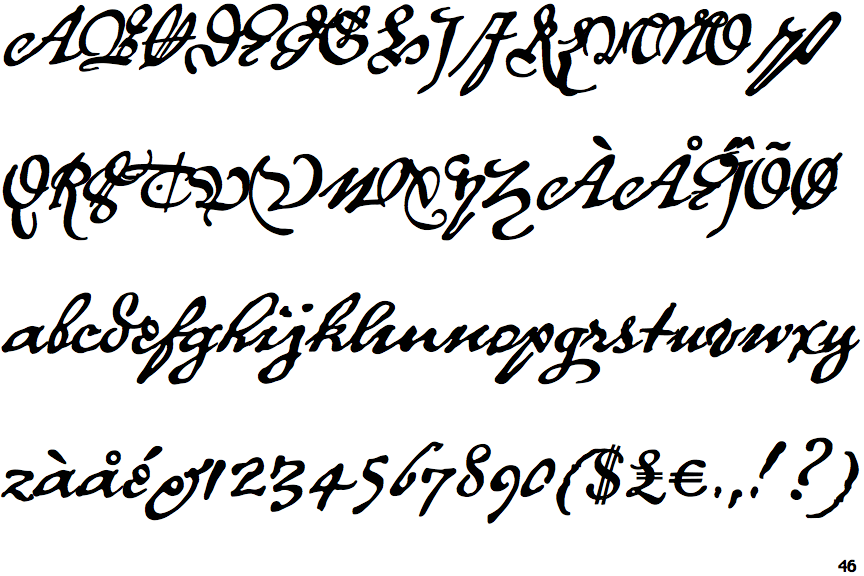 ABCDEFGHIJKLMNOP
QRSTUVWXYZÀÅÉÎÕØ
abcdefghijklmnopqrstuvwxy
zàåé&1234567890($£€.,!?)
46